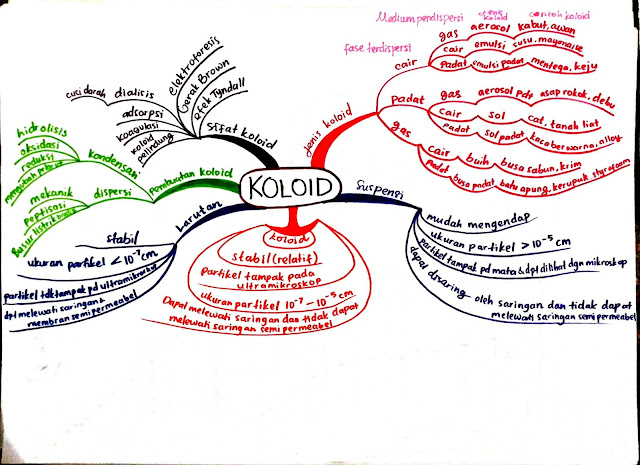 KOLOID
Jenis koloid
fase terdispersi
Medium pendispersi
jenis koloid
contoh koloid
cair
gas aerosol kabut, awan
cair emulsi susu, mayonaise
Padat emulsi padat mentega, keju
Padat
gas aerosol pdt asap rokok, debu
cair sol cat, tanah liat
padat sol padat kaca berwarna, alloy
gas
cair buih busa sabun, krim
Padat busa padat, batu apung, kerupuk, styrofoam
Suspensi
mudah mengendap
ukuran partikel > 10⁻⁵ cm
partikel tampak pd mata & dpt dilihat dgn mikroskop
dapat disaring oleh saringan dan tidak dapat
melewati saringan semipermeabel
koloid
stabil (relatif)
Partikel tampak pada
ultramikroskop
ukuran partikel 10⁻⁷ - 10⁻⁵ cm
Dapat melewati saringan dan tidak dapat
melewati saringan semi permeabel
Larutan
stabil
ukuran partikel < 10⁻⁷ cm
partikel tdk tampak pd ultramikroskop
dpt melewati saringan &
membran semi permeabel
Pembuatan koloid
kondensasi
hidrolisis
oksidasi
reduksi
dispersi
mekanik
Peptisasi
Busur listrik
Sifat koloid
elektroforesis
Gerak Brown
efek Tyndall
dialisis
cuci darah
adsorpsi
koagulasi
koloid
pelindung